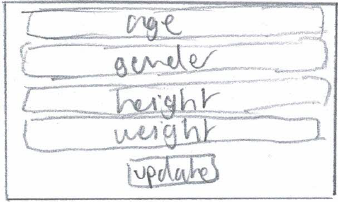 age
gender
height
weight
update